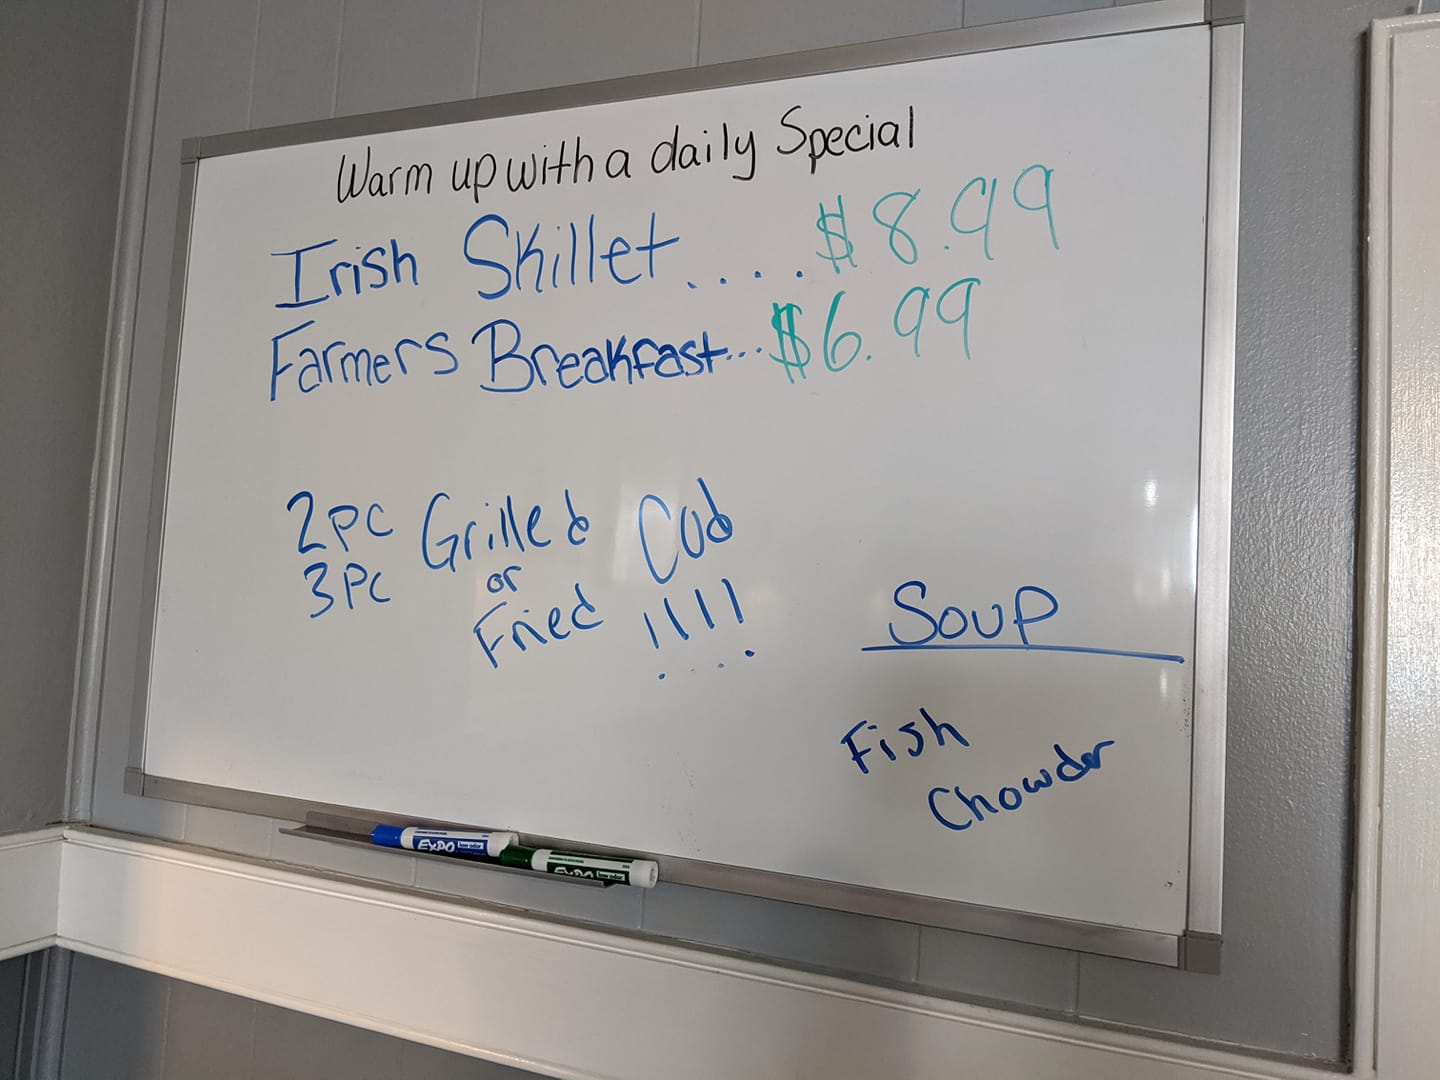 Warm up with a daily Special
Irish Skillet.....$8.99
Farmers Breakfast...$6.99
2PC Grilled Cod
3PC or
Fried !!!!
Soup
Fish
Chowder
EXPO low odor
EXPO low odor